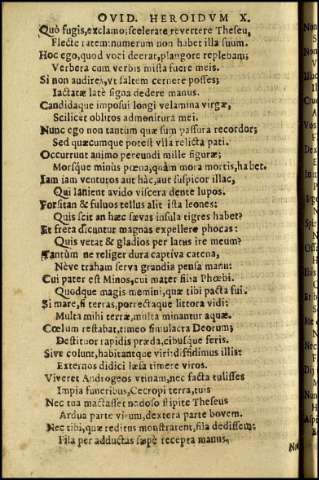 OVID. HEROIDVM X.
Quò fugis, exclamo; scelerate revertere Theseu,
Flecte ratem: numerum non habet illa suum.
Hoc ego, quod voci deerat, plangore replebam;
Verbera cum verbis mista fuere meis.
Si non audires, vt saltem cernere posses;
Iactatæ latè signa dedere manus.
Candidaque imposui longi velamina virgæ,
Scilicet oblitos admonitura mei.
Nunc ego non tantùm quæ sum passura recordor;
Sed quæcumque potest vlla relicta pati.
Occurrunt animo pereundi mille figuræ;
Morsque minùs pœna, quàm mora mortis, habet.
Iam iam venturos aut hàc, aut suspicor illac,
Qui lanient avido viscera dente lupos.
Forsitan & fuluos tellus alit ista leones:
Quis scit an hæc sævas insula tigres habet?
Et freta dicuntur magnas expellere phocas:
Quis vetat & gladios per latus ire meum?
Tantùm ne religer dura captiva catena,
Nève traham serva grandia pensa manu:
Cui pater est Minos, cui mater filia Phœbi.
Quodque magis memini, quæ tibi pacta fui.
Si mare, si terras, porrectaque littora vidi:
Multa mihi terræ, multa minantur aquæ.
Cœlum restabat, timeo simulacra Deorum;
Destituor rapidis præda, cibusque feris.
Sive colunt, habitantque viri: diffidimus illis:
Externos didici læsa timere viros.
Viveret Androgeos vtinam, nec facta tulisses
Impia funeribus, Cecropi terra, tuis
Nec tua mactasset nodoso stipite Theseus
Ardua parte virum, dextera parte bovem.
Nec tibi, quæ reditus monstrarent, fila dedissem:
Fila per adductas sæpè recepta manus,